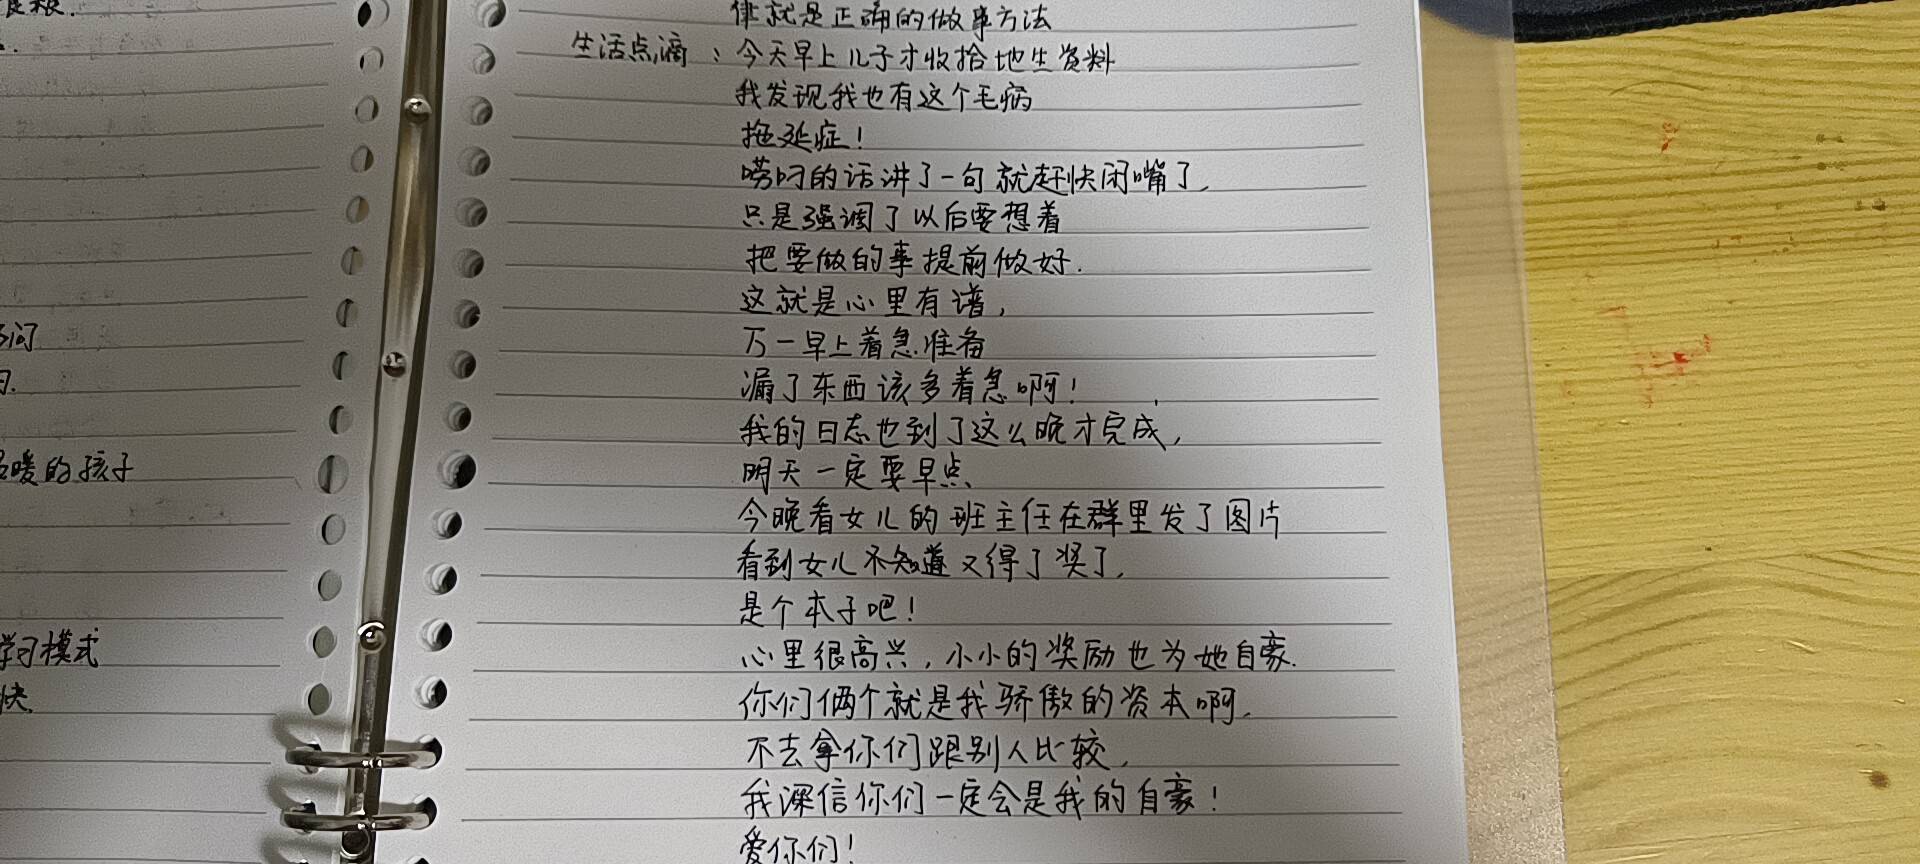 食粮.
律就是正确的做事方法
生活点滴：今天早上儿子才收拾地生资料
我发现我也有这个毛病
拖延症！
唠叨的话讲了一句就赶快闭嘴了.
只是强调了以后要想着
把要做的事提前做好.
这就是心里有谱,
万一早上着急准备
漏了东西该多着急啊！
我的日志也到了这么晚才完成,
明天一定要早点
今晚看女儿的班主任在群里发了图片
看到女儿不知道又得了奖了.
是个本子吧！
心里很高兴,小小的奖励也为她自豪.
你们俩个就是我骄傲的资本啊.
不去拿你们跟别人比较.
我深信你们一定会是我的自豪！
爱你们！
问
暖的孩子
学习模式
快.